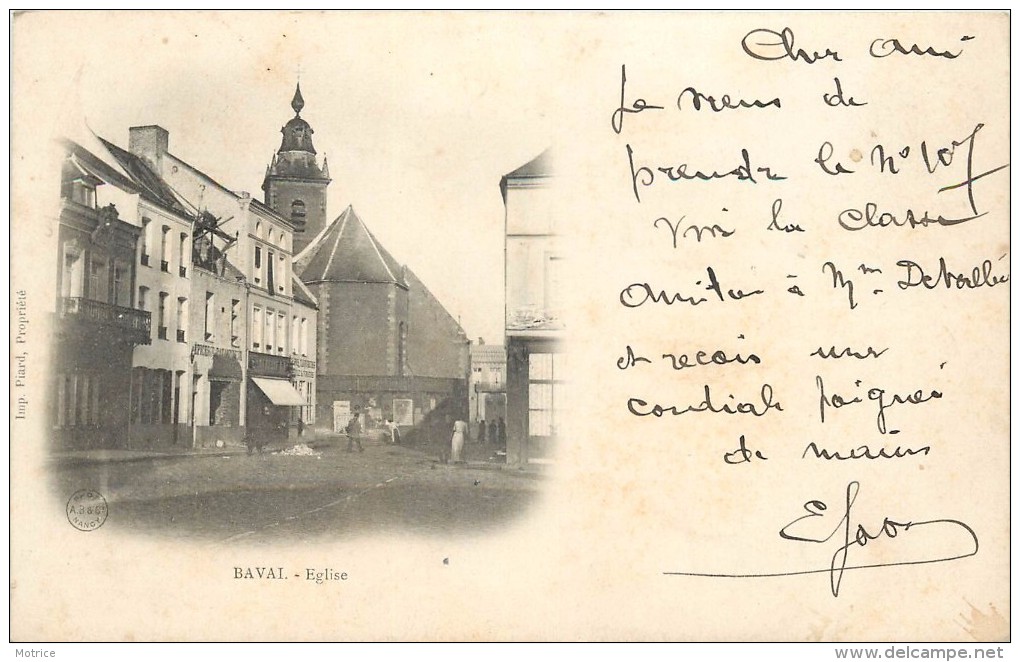 Cher ami
Je viens de
prendre le N° 107
Vive la Classe
Amitié à Mme Deballi
et reçois une
cordiale poignée
de mains
Imp. Piard, Propriété
A.B & Cie
NANCY
BAVAI. - Eglise
Motrice
www.delcampe.net